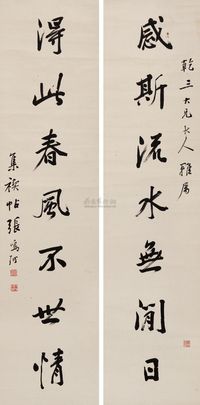 乾三大兄大人雅屬
感斯流水無閒日
得此春風不世情
集禊帖張鳴珂